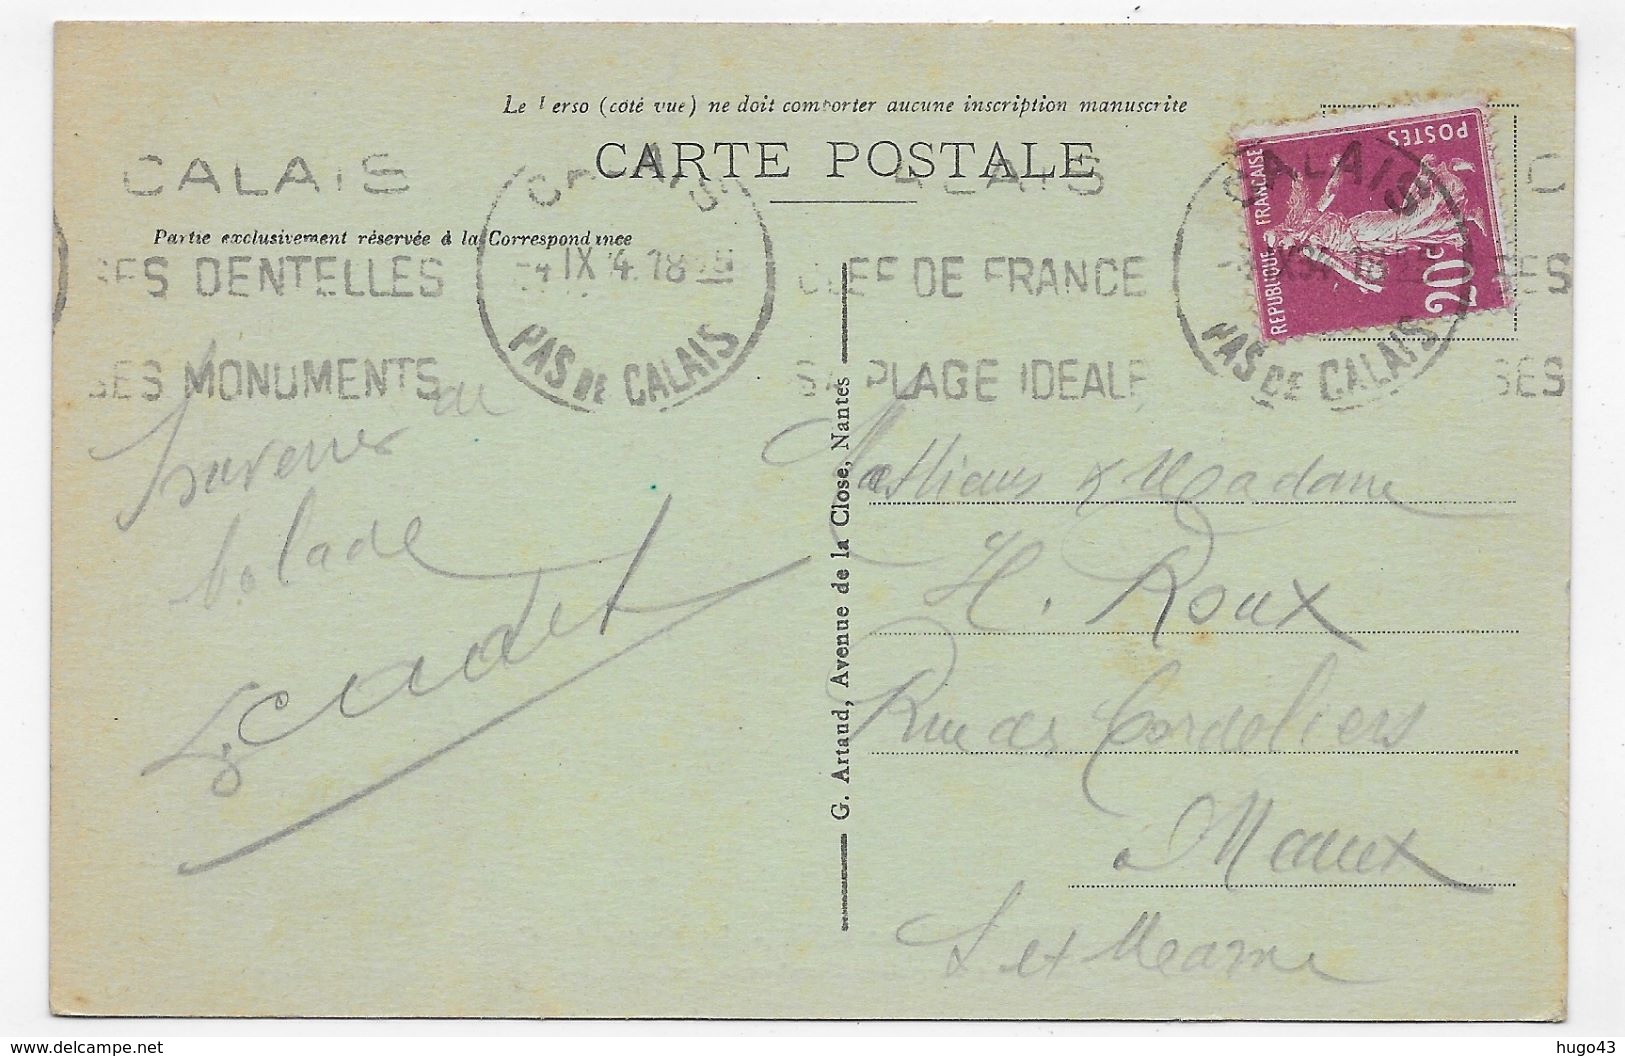 Le Verso (côté vue) ne doit comporter aucune inscription manuscrite
CARTE POSTALE
Partie exclusivement réservée à la Correspondance
CALAIS
SES DENTELLES
SES MONUMENTS
CALAIS
-4 IX 34 18
PAS DE CALAIS
CALAIS
CLEF DE FRANCE
SA PLAGE IDEALE
CALAIS
-4 IX 34 18
PAS DE CALAIS
C
SES
SES
POSTES
REPUBLIQUE FRANÇAISE
20c
G. Artaud, Avenue de la Close, Nantes
Souvenir de
balade
Cadet
& Madame
H. Roux
Rue des Cordeliers
à Meaux
S et Marne
delcampe.net
hugo43